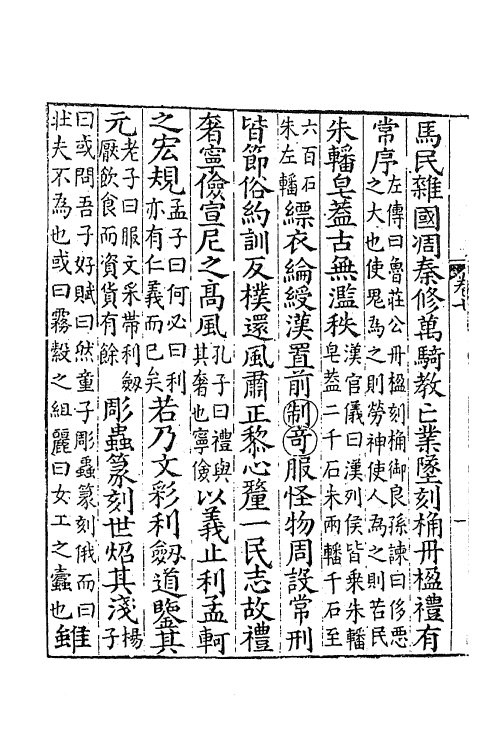 馬民雜國凋秦修萬騎教亡業墜刻桷丹楹禮有
常序左傳曰魯莊公丹楹刻桷御良孫諫曰侈惡
之大也使鬼為之則勞神使人為之則苦民
朱轓皁蓋古無濫秩漢官儀曰漢列侯皆乘朱轓
皁蓋二千石朱兩轓千石至
六百石
朱左轓
縹衣綸綬漢置前制奇服怪物周設常刑
皆節俗約訓反樸還風肅正黎心釐一民志故禮
奢寧儉宣尼之高風孔子曰禮與
其奢也寧儉
以義止利孟軻
之宏規孟子曰何必曰利
亦有仁義而已矣
若乃文彩利劔道鑒其
元老子曰服文采帶利劔
厭飲食而資貨有餘
彫蟲篆刻世炤其淺楊
子
曰或問吾子好賦曰然童子彫蟲篆刻俄而曰
壯夫不為也或曰霧縠之組麗曰女工之蠹也
雖